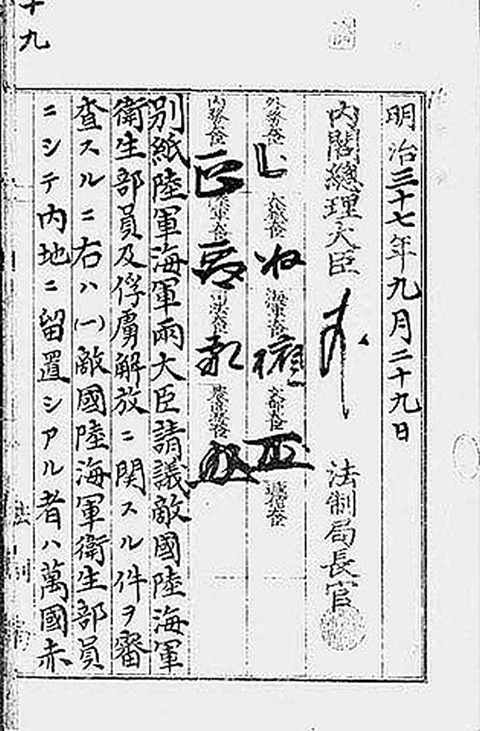 明治三十七年九月二十九日
内閣總理大臣 法制局長官
外務大臣 大藏大臣 海軍大臣 文部大臣 遞信大臣
內務大臣 陸軍大臣 司法大臣 農商務大臣
別紙陸軍海軍兩大臣請議敵國陸海軍
衛生部員及俘虜解放ニ関スル件ヲ審
査スルニ右ハ(一)敵國陸海軍衛生部員
ニシテ内地ニ留置シアル者ハ萬國赤
十九